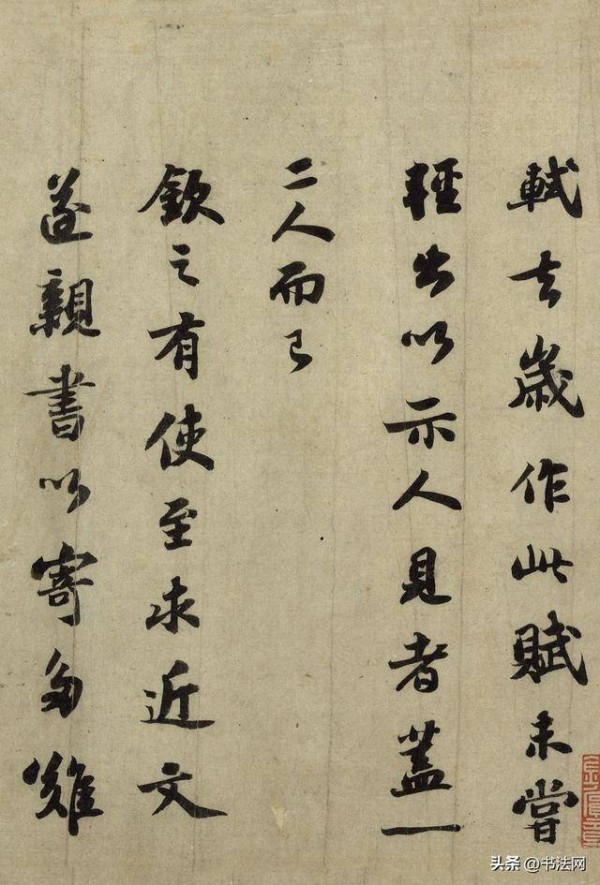 軾去歲作此賦未嘗
輕出以示人見者蓋一
二人而已
欽之有使至求近文
遂親書以寄多難
头条 @书法网